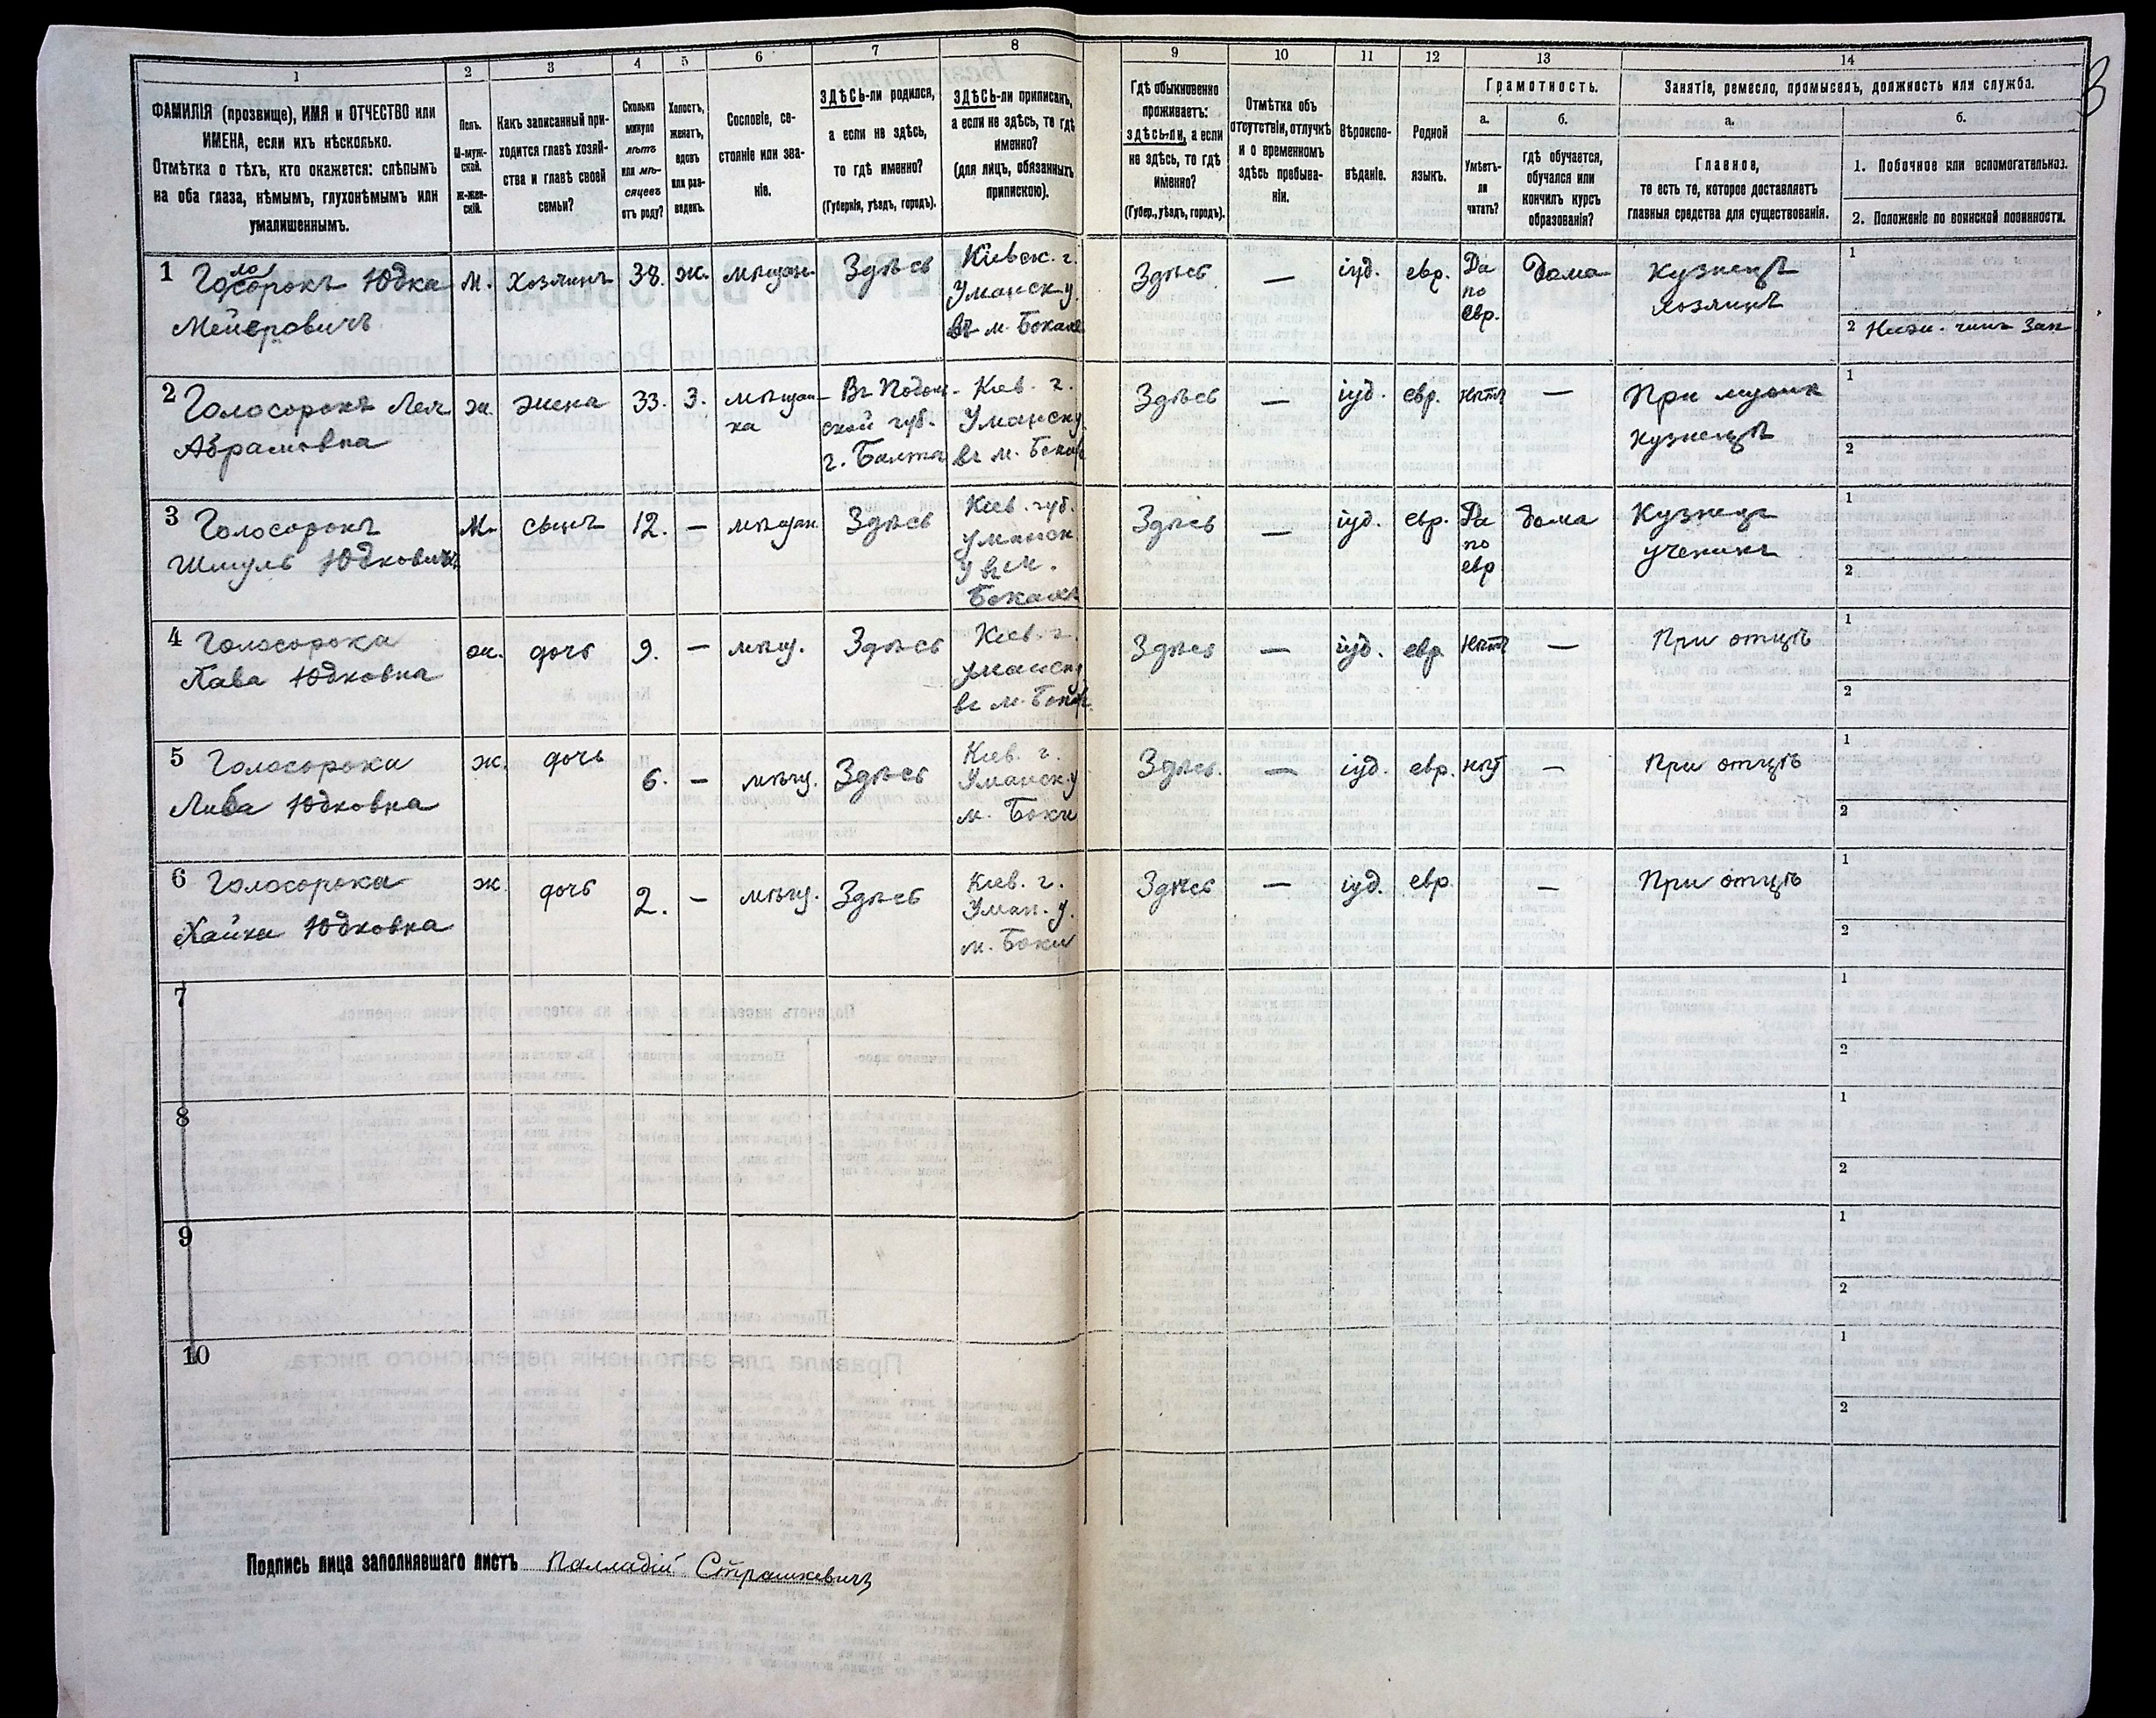 1 2 3 4 5 6 7 8 9 10 11 12 13 14
ФАМИЛІЯ (прозвище), ИМЯ и ОТЧЕСТВО или
ИМЕНА, если ихъ нѣсколько.
Отмѣтка о тѣхъ, кто окажется: слѣпымъ
на оба глаза, нѣмымъ, глухонѣмымъ или
умалишеннымъ.
Полъ.
М-муж-
ской.
Ж-жен-
скій.
Какъ записанный при-
ходится главѣ хозяй-
ства и главѣ своей
семьи?
Сколько
минуло
лѣтъ
или мѣ-
сяцевъ
отъ роду?
Холостъ,
женатъ,
вдовъ
или раз-
веденъ.
Сословіе, со-
стояніе или зва-
ніе.
ЗДѢСЬ-ли родился,
а если не здѣсь,
то гдѣ именно?
(Губернія, уѣздъ, городъ).
ЗДѢСЬ-ли приписанъ,
а если не здѣсь, то гдѣ
именно?
(для лицъ, обязанныхъ
припискою).
Гдѣ обыкновенно
проживаетъ:
ЗДѢСЬ-ли, а если
не здѣсь, то гдѣ
именно?
(Губер., уѣздъ, городъ).
Отмѣтка объ
отсутствіи, отлучкѣ
и о временномъ
здѣсь пребыва-
ніи.
Вѣроиспо-
вѣданіе.
Родной
языкъ.
Грамотность.
а.
Умѣетъ-
ли
читать?
б.
гдѣ обучается,
обучался или
кончилъ курсъ
образованія?
Занятіе, ремесло, промыселъ, должность или служба.
а.
Главное,
то есть то, которое доставляетъ
главныя средства для существованія.
б.
1. Побочное или вспомогательное.
2. Положеніе по воинской повинности.
3
1 Голосорокъ Юдка
Мейеровичъ
М. Хозяинъ 38. ж. мѣщан. Здѣсь
Кіевск. г.
Уманск у.
въ м. Бокаль
Здѣсь — іуд. евр.
Да
по
евр.
дома
Кузнецъ
хозяинъ
1
2 Нижн. чинъ Зап
2 Голосорокъ Лея
Абрамовна
ж. жена 33. З.
мѣщан-
ка
Въ Подол-
ской губ.
г. Балта
Кіев. г.
Уманск у.
въ м. Бокал
Здѣсь — іуд. евр. нѣтъ —
При мужѣ
кузнецѣ
1
2
3 Голосорокъ
Шмуль Юдковичъ
М. сынъ 12. — мѣщан. Здѣсь
Кіев. губ.
уманск
у въ м.
Бокаль
Здѣсь — іуд. евр.
Да
по
евр
дома
Кузнецъ
ученикъ
1
2
4 Голосорока
Хава Юдковна
ж. дочь 9. — мѣщ. Здѣсь
Кіев. г.
уманск у
въ м. Бокал
Здѣсь — іуд. евр нѣтъ — При отцѣ
1
2
5 Голосорока
Либа Юдковна
ж. дочь 6. — мѣщ. Здѣсь
Кіев. г.
Уманск. у
м. Боки
Здѣсь. — іуд. евр. нѣтъ — При отцѣ
1
2
6 Голосорока
Хайка Юдковна
ж. дочь 2. — мѣщ. Здѣсь
Кіев. г.
Уман. у.
м. Боки
Здѣсь — іуд. евр. — При отцѣ
1
2
7
1
2
8
1
2
9
1
2
10
1
2
Подпись лица заполнявшаго листъ Палладій Страшкевичъ